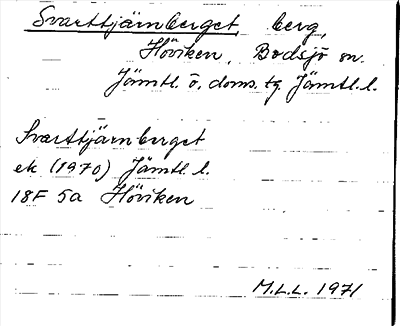 Svarttjärnberget, berg,
Höviken, Bodsjö sn.
Jämtl. ö. doms. tg Jämtl. l.
Svarttjärnberget
ek (1970) Jämtl. l.
18F 5a Höviken
M.L.L. 1971